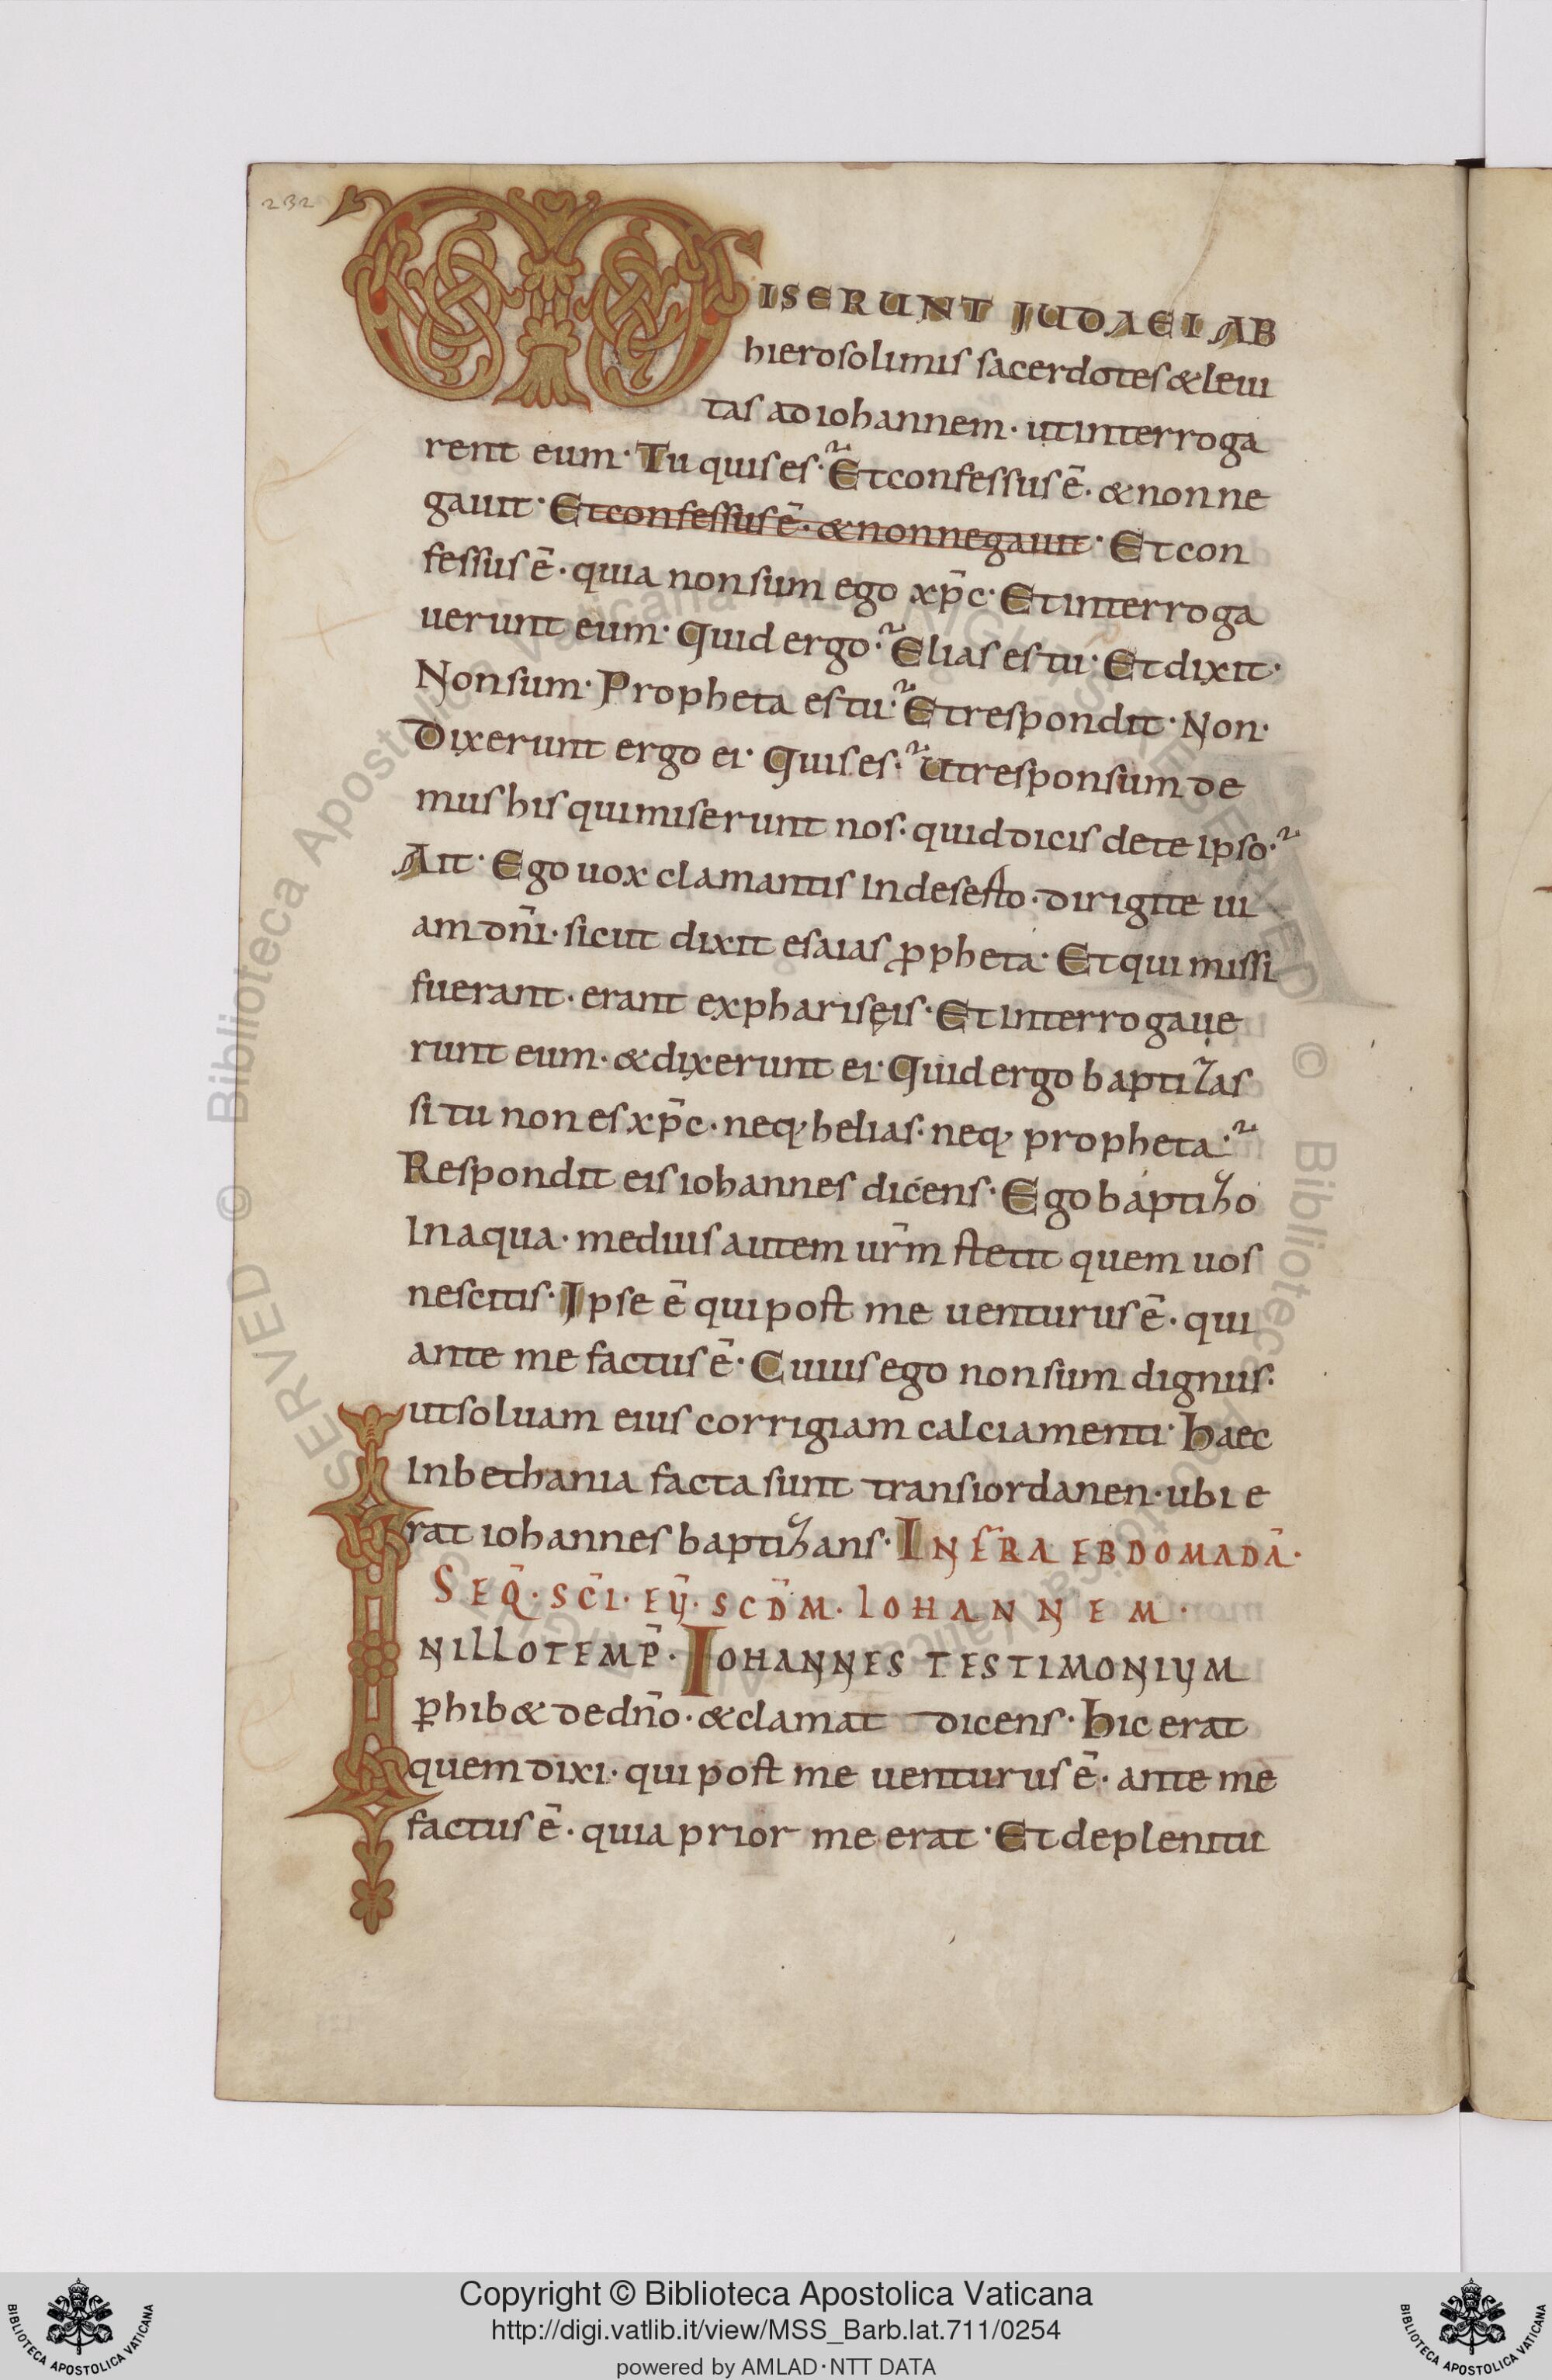 232
MISERUNT JUDAEI AB
hierosolimis sacerdotes & leui
tas ad iohannem · ut interroga
rent eum · Tu quis es · Et confessus ē · & non ne
gauit · Et confessus ē · & non negauit · Et con
fessus ē · quia non sum ego xp̄c · Et interroga
uerunt eum · Quid ergo · Elias es tu · Et dixit ·
Non sum · Propheta es tu · Et respondit · Non ·
Dixerunt ergo ei · Quis es · Ut responsum de
mus his qui miserunt nos · quid dicis de te ipso ·
Ait · Ego uox clamantis In deserto · dirigite ui
am dn̄i · sicut dixit esaias ꝓpheta · Et qui missi
fuerant · erant ex phariseis · Et Interrogaue
runt eum · & dixerunt ei · Quid ergo baptizas
si tu non es xp̄c · neq, helias · neq, propheta ·
Respondit eis iohannes dicens · Ego baptizo
In aqua · medius autem ur̄m stetit quem uos
nescitis · Ipse ē qui post me uenturus ē · qui
ante me factus ē · Cuius ego non sum dignus ·
ut soluam eius corrigiam calciamenti · Haec
In bethania facta sunt trans iordanen · ubi e
rat iohannes baptizans · INFRA EBDOMADĀ ·
SEQ̄ · SC̄I · EŪ · SCD̄M · IOHANNEM ·
IN ILLO TEMP̄ · IOHANNES TESTIMONIUM
ꝑhib& de dn̄o · & clamat dicens · Hic erat
quem dixi · qui post me uenturus ē · ante me
factus ē · quia prior me erat · Et de plenitu
Copyright © Biblioteca Apostolica Vaticana
http://digi.vatlib.it/view/MSS_Barb.lat.711/0254
powered by AMLAD·NTT DATA
BIBLIOTECA APOSTOLICA VATICANA
BIBLIOTECA APOSTOLICA VATICANA